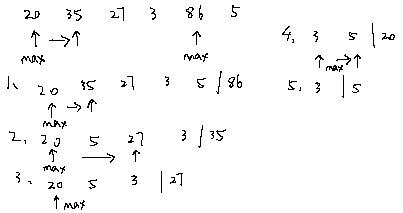 20 35 27 3 86 5
max
1. 20 35 27 3 5 | 86
max
2. 20 5 27 3 | 35
max
3. 20 5 3 | 27
max
4. 3 5 | 20
max
5. 3 | 5